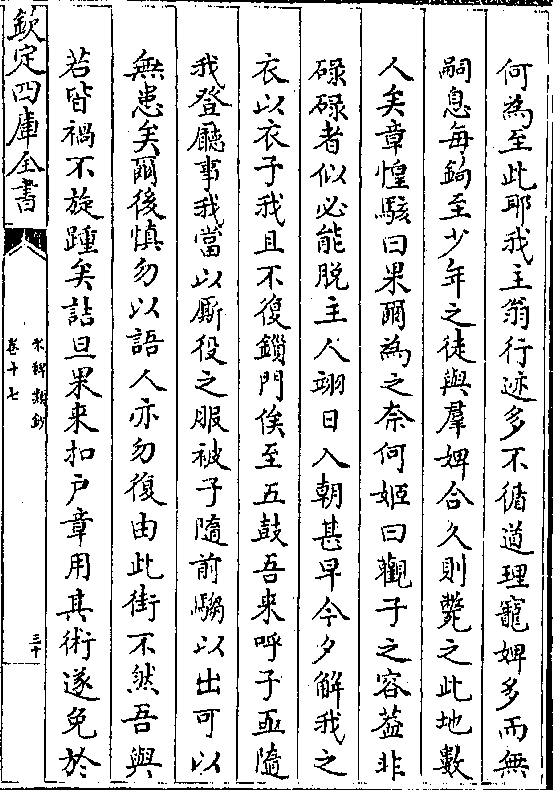 何為至此耶我主翁行迹多不循道理寵婢多而無
嗣息每鉤至少年之徒與羣婢合久則斃之此地數
人矣章惶駭曰果爾為之奈何姬曰觀子之容葢非
碌碌者似必能脫主人翊日入朝甚早今夕解我之
衣以衣子我且不復鎖門俟至五鼓吾来呼子亟隨
我登廳事我當以厮役之服被子隨前騶以出可以
無患矣爾後慎勿以語人亦勿復由此街不然吾與
若皆禍不旋踵矣詰旦果来扣户章用其術遂免於
欽定四庫全書
宋稗類鈔
卷十七
三十